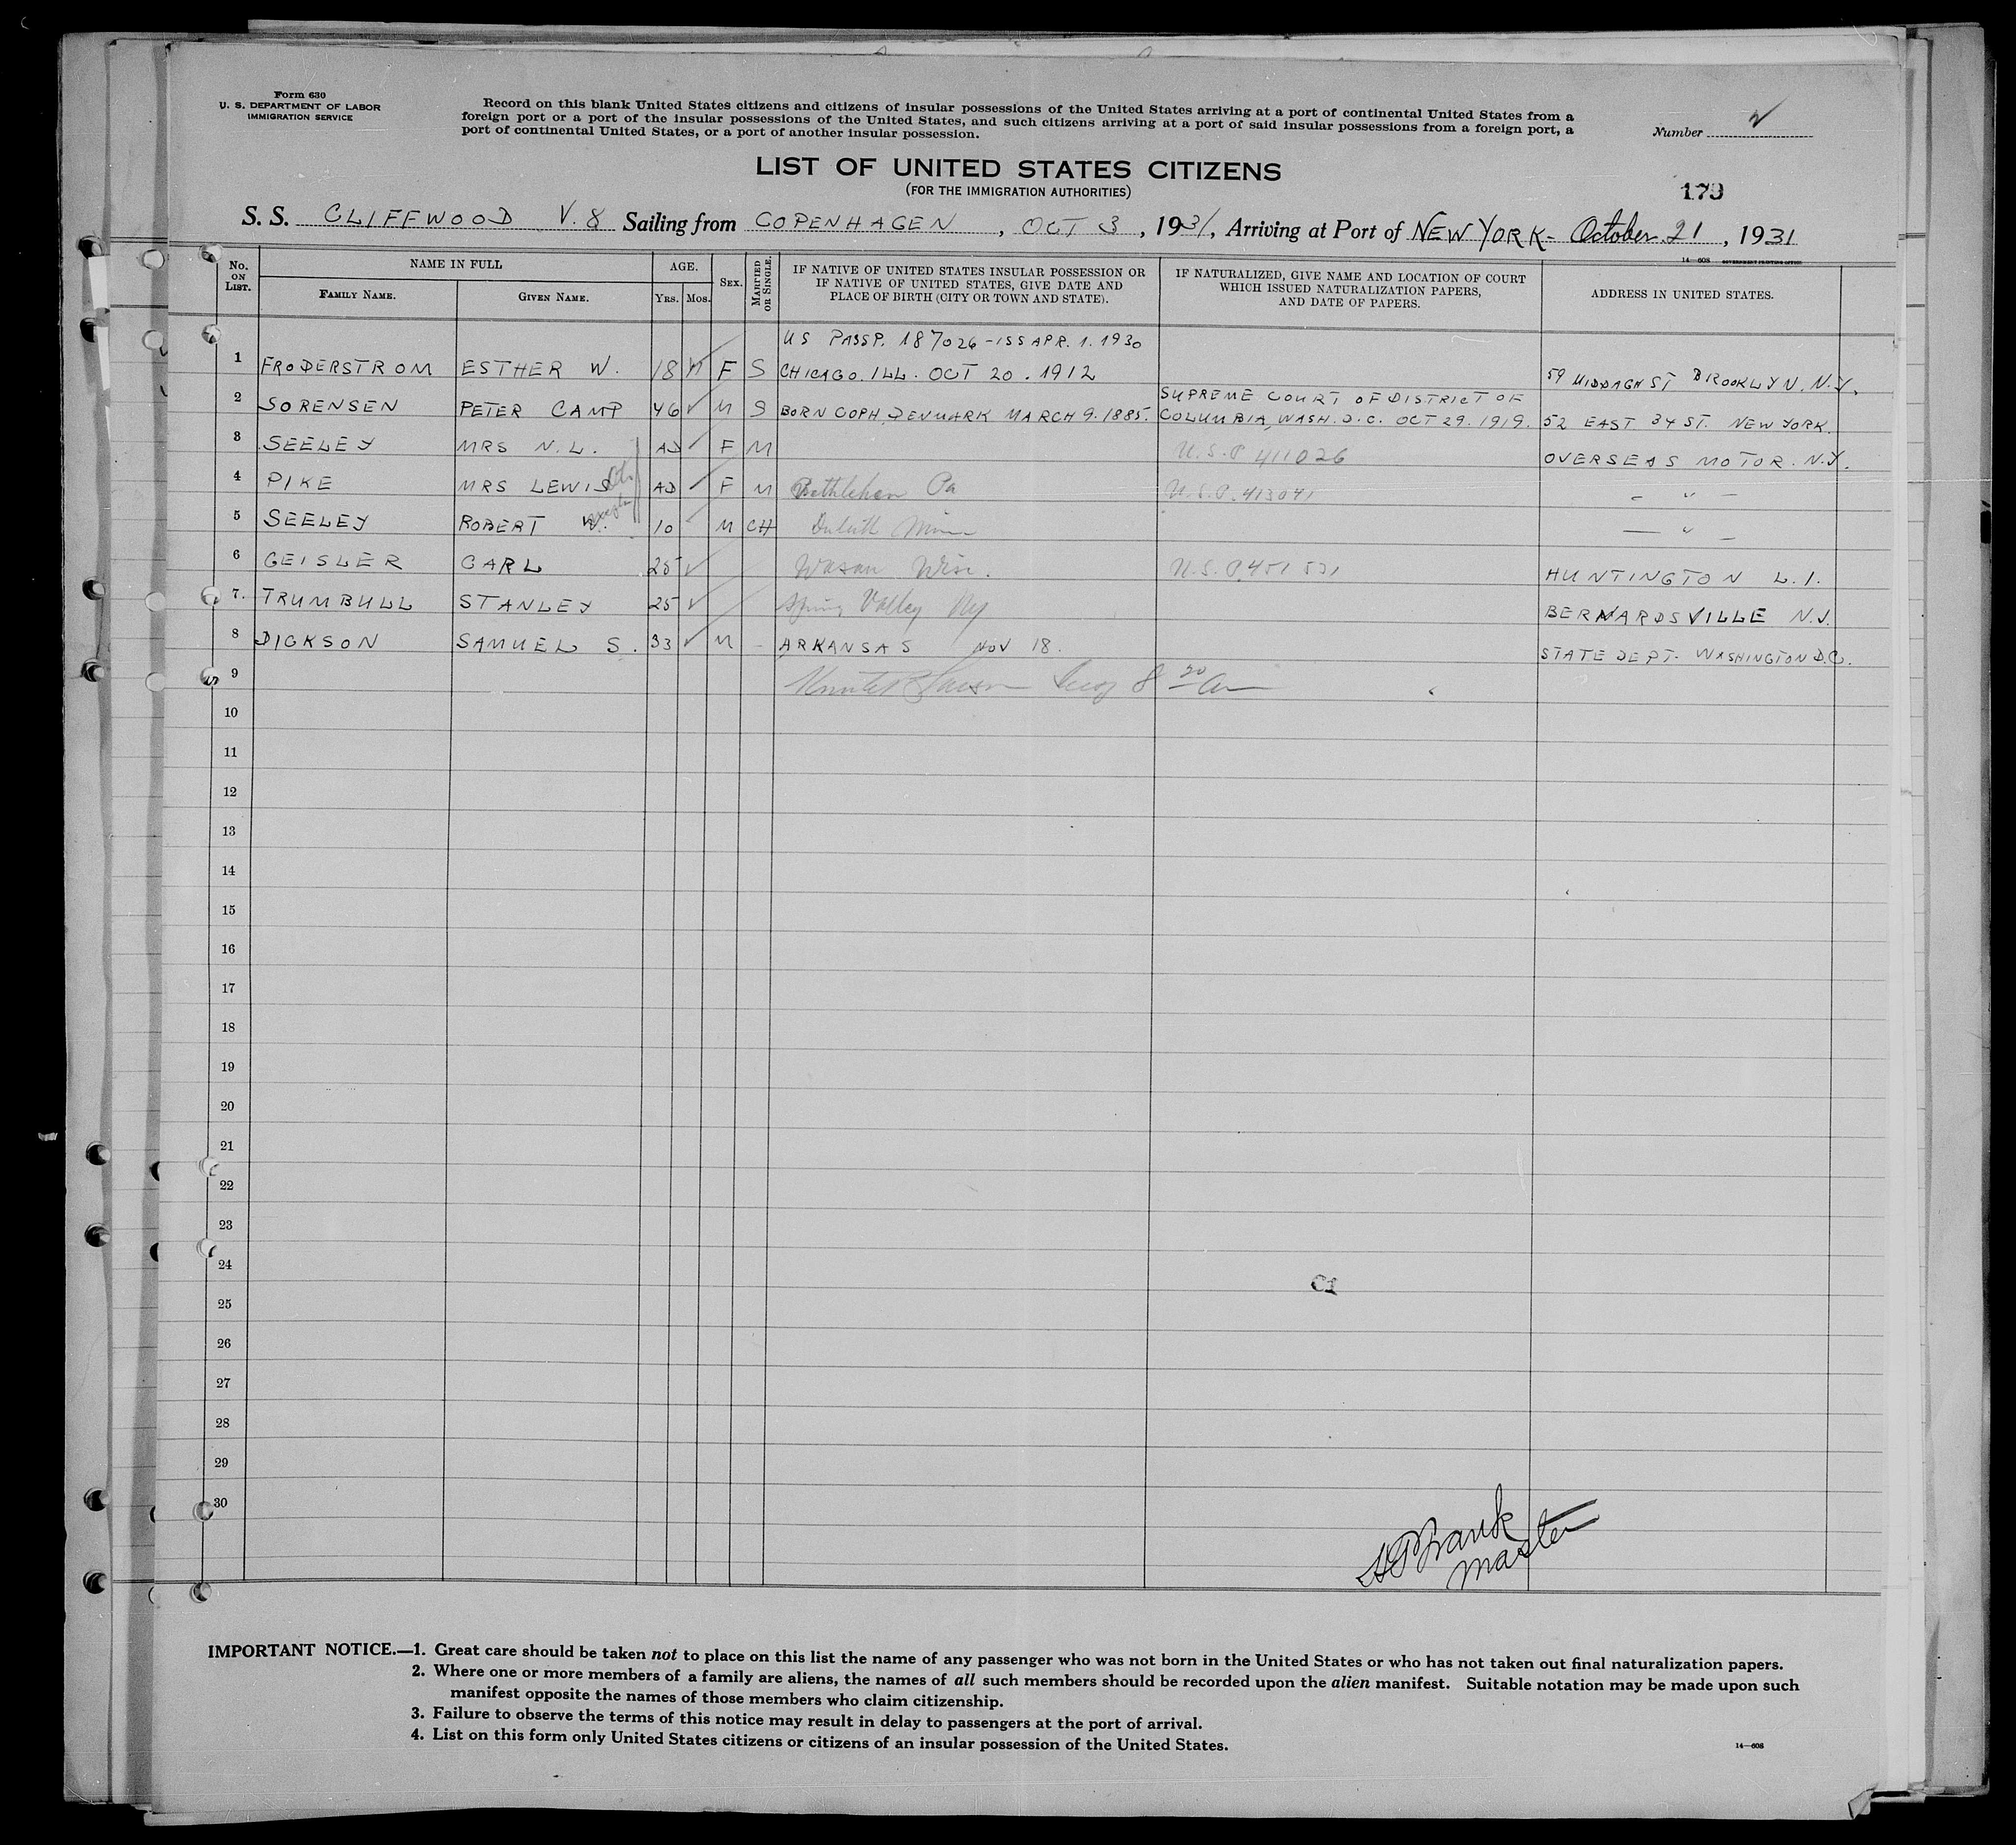 Form 630
U. S. DEPARTMENT OF LABOR
IMMIGRATION SERVICE
Record on this blank United States citizens and citizens of insular possessions of the United States arriving at a port of continental United States from a
foreign port or a port of the insular possessions of the United States, and such citizens arriving at a port of said insular possessions from a foreign port, a
port of continental United States, or a port of another insular possession.
Number
LIST OF UNITED STATES CITIZENS
(FOR THE IMMIGRATION AUTHORITIES)
179
S. S. CLIFFWOOD V. 8 Sailing from COPENHAGEN, OCT 3, 1931, Arriving at Port of NEW YORK - October 21, 1931
14—608 GOVERNMENT PRINTING OFFICE
No. ON LIST. NAME IN FULL FAMILY NAME. GIVEN NAME. AGE. YRS. MOS. SEX. MARRIED OR SINGLE. IF NATIVE OF UNITED STATES INSULAR POSSESSION OR IF NATIVE OF UNITED STATES, GIVE DATE AND PLACE OF BIRTH (CITY OR TOWN AND STATE). IF NATURALIZED, GIVE NAME AND LOCATION OF COURT WHICH ISSUED NATURALIZATION PAPERS, AND DATE OF PAPERS. ADDRESS IN UNITED STATES.
US PASSP. 187026 - ISS APR. 1. 1930
1 FRODERSTROM ESTHER W. 18 F S CHICAGO. ILL. OCT 20. 1912 59 MIDDAGH ST BROOKLYN. N.Y.
SUPREME COURT OF DISTRICT OF
2 SORENSEN PETER CAMP 46 M S BORN COPH. DENMARK MARCH 9. 1885. COLUMBIA, WASH. D.C. OCT 29. 1919. 52 EAST 34 ST. NEW YORK.
3 SEELEY MRS N.L. AD F M U.S.P. 411026 OVERSEAS MOTOR. N.Y.
4 PIKE MRS LEWIS AD F M Bethlehem Pa U.S.P. 413041 - " -
5 SEELEY ROBERT W. 10 M CH Duluth Minn - " -
6 GEISLER CARL 25 Wasau Wisc. U.S.P. 451531 HUNTINGTON L.I.
7. TRUMBULL STANLEY 25 Spring Valley Ny BERNARDSVILLE N.J.
8 DICKSON SAMUEL S. 33 M - ARKANSAS NOV 18. STATE DEPT. WASHINGTON D.C.
9
10
11
12
13
14
15
16
17
18
19
20
21
22
23
24
C1
25
26
27
28
29
30
Master
IMPORTANT NOTICE.—1. Great care should be taken not to place on this list the name of any passenger who was not born in the United States or who has not taken out final naturalization papers.
2. Where one or more members of a family are aliens, the names of all such members should be recorded upon the alien manifest. Suitable notation may be made upon such
manifest opposite the names of those members who claim citizenship.
3. Failure to observe the terms of this notice may result in delay to passengers at the port of arrival.
4. List on this form only United States citizens or citizens of an insular possession of the United States.
14—608